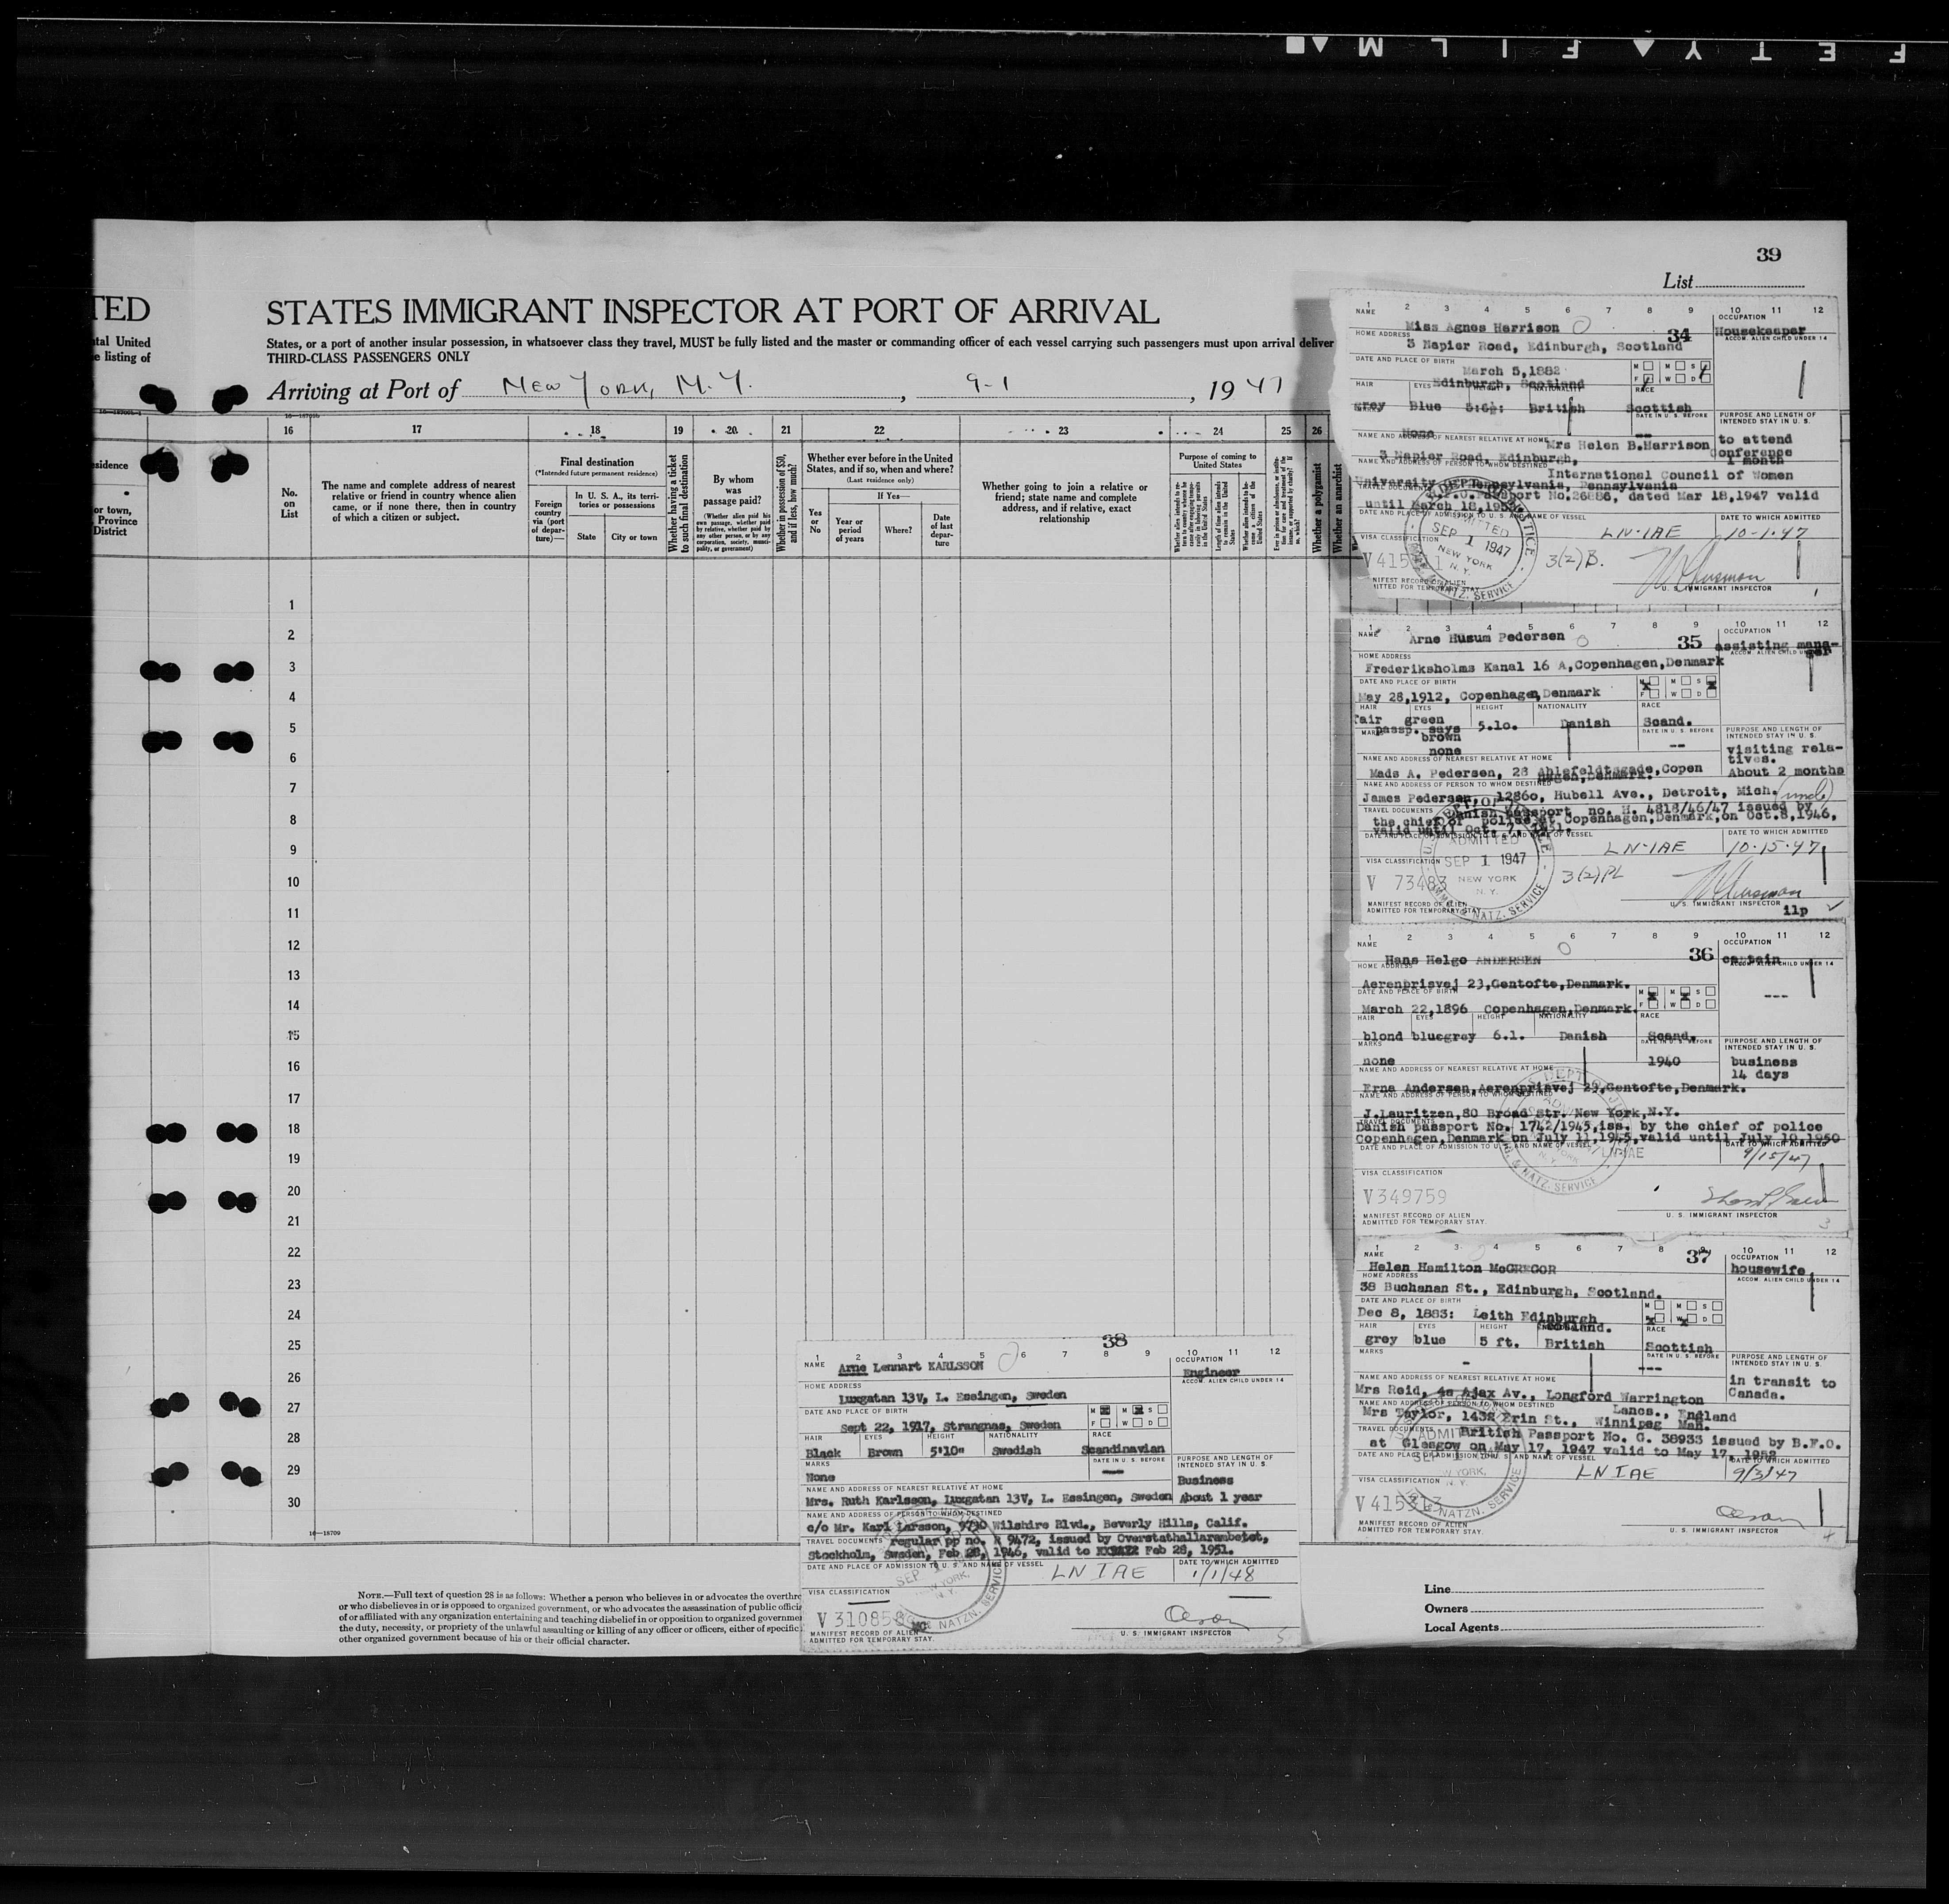 F E T Y F I L M
39
List
TED
STATES IMMIGRANT INSPECTOR AT PORT OF ARRIVAL
tal United
e listing of
States, or a port of another insular possession, in whatsoever class they travel, MUST be fully listed and the master or commanding officer of each vessel carrying such passengers must upon arrival deliver
THIRD-CLASS PASSENGERS ONLY
Arriving at Port of New York, N.Y. , 9-1 , 1947
16 17 18 19 20 21 22 23 24 25 26
sidence
or town,
Province
District
No. on List
The name and complete address of nearest relative or friend in country whence alien came, or if none there, then in country of which a citizen or subject.
Final destination
(*Intended future permanent residence)
Foreign country via (port of departure)—
In U. S. A., its territories or possessions
State
City or town
Whether having a ticket to such final destination
By whom was passage paid?
(Whether alien paid his own passage, whether paid by relative, whether paid by any other person, or by any corporation, society, municipality, or government)
Whether in possession of $50, and if less, how much?
Whether ever before in the United States, and if so, when and where?
(Last residence only)
Yes or No
If Yes—
Year or period of years
Where?
Date of last departure
Whether going to join a relative or friend; state name and complete address, and if relative, exact relationship
Purpose of coming to United States
Whether a polygamist
Whether an anarchist
1
2
3
4
5
6
7
8
9
10
11
12
13
14
15
16
17
18
19
20
21
22
23
24
25
26
27
28
29
30
16—18709
NOTE.—Full text of question 28 is as follows: Whether a person who believes in or advocates the overthr
or who disbelieves in or is opposed to organized government, or who advocates the assassination of public offici
of or affiliated with any organization entertaining and teaching disbelief in or opposition to organized governme
the duty, necessity, or propriety of the unlawful assaulting or killing of any officer or officers, either of specific
other organized government because of his or their official character.
1 2 3 4 5 6 7 8 9 10 11 12
NAME Miss Agnes Harrison 34
OCCUPATION Housekeeper
HOME ADDRESS 3 Napier Road, Edinburgh, Scotland
ACCOM. ALIEN CHILD UNDER 14
DATE AND PLACE OF BIRTH
March 5,1882
Edinburgh, Scotland
HAIR EYES RACE
grey Blue British Scottish
DATE IN U. S. BEFORE
PURPOSE AND LENGTH OF INTENDED STAY IN U. S.
None
NAME AND ADDRESS OF NEAREST RELATIVE AT HOME Mrs Helen B.Harrison
to attend conference 1 month
3 Napier Road, Edinburgh,
NAME AND ADDRESS OF PERSON TO WHOM DESTINED
International Council of Women
University of Pennsylvania, Pennsylvania
Passport No.26886, dated Mar 18,1947 valid
until March 18,1952.
DATE TO WHICH ADMITTED
LN-IAE 10-1-47
VISA CLASSIFICATION
ADMITTED SEP 1 1947 NEW YORK N.Y.
3(2)B.
MANIFEST RECORD OF ALIEN
ADMITTED FOR TEMPORARY STAY
U. S. IMMIGRANT INSPECTOR
1 2 3 4 5 6 7 8 9 10 11 12
NAME Arne Husum Pedersen 35
OCCUPATION assisting manager
HOME ADDRESS
ACCOM. ALIEN CHILD UNDER 14
Frederiksholms Kanal 16 A,Copenhagen,Denmark
DATE AND PLACE OF BIRTH
May 28,1912, Copenhagen,Denmark
HAIR EYES HEIGHT NATIONALITY RACE
fair green 5.1o. Danish Scand.
passp. says brown
MARKS none
DATE IN U. S. BEFORE --
PURPOSE AND LENGTH OF INTENDED STAY IN U. S.
visiting relatives.
About 2 months
NAME AND ADDRESS OF NEAREST RELATIVE AT HOME
Mads A. Pedersen, 28 Ahlefeldtsgade,Copenhagen,Denmark.
NAME AND ADDRESS OF PERSON TO WHOM DESTINED
James Pedersen, 1286o, Hubell Ave., Detroit, Mich. (uncle)
TRAVEL DOCUMENTS Danish Passport no. H. 4818/46/47 issued by
the chief of police of Copenhagen,Denmark,on Oct.8,1946,
valid until Oct. 7, 1951.
DATE AND PLACE OF ADMISSION TO U. S. AND NAME OF VESSEL
DATE TO WHICH ADMITTED
LN-IAE 10-15-47
VISA CLASSIFICATION
ADMITTED SEP 1 1947 NEW YORK N.Y. IMM. & NATZ. SERVICE
V 73483 3(2)PL
MANIFEST RECORD OF ALIEN
ADMITTED FOR TEMPORARY STAY
U. S. IMMIGRANT INSPECTOR
ilp
1 2 3 4 5 6 7 8 9 10 11 12
NAME Hans Helge ANDERSEN 36
OCCUPATION captain
HOME ADDRESS
ACCOM. ALIEN CHILD UNDER 14
Aerenprisvej 23,Gentofte,Denmark.
---
DATE AND PLACE OF BIRTH
March 22,1896 Copenhagen,Denmark.
HAIR EYES HEIGHT NATIONALITY RACE
blond bluegrey 6.1. Danish Scand.
MARKS none
DATE IN U. S. BEFORE 1940
PURPOSE AND LENGTH OF INTENDED STAY IN U. S.
business 14 days
NAME AND ADDRESS OF NEAREST RELATIVE AT HOME
Erna Andersen,Aerenprisvej 23,Gentofte,Denmark.
NAME AND ADDRESS OF PERSON TO WHOM DESTINED
J.Lauritzen,80 Broad Str. New York,N.Y.
TRAVEL DOCUMENTS
Danish passport No. 1742/1945,iss. by the chief of police
Copenhagen,Denmark on July 11,1945,valid until July 10,1950
DATE AND PLACE OF ADMISSION TO U. S. AND NAME OF VESSEL
DATE TO WHICH ADMITTED
LN-IAE 9/15/47
VISA CLASSIFICATION
V349759
MANIFEST RECORD OF ALIEN
ADMITTED FOR TEMPORARY STAY.
U. S. IMMIGRANT INSPECTOR
3
1 2 3 4 5 6 7 8 9 10 11 12
NAME Helen Hamilton McGREGOR 37
OCCUPATION housewife
HOME ADDRESS
ACCOM. ALIEN CHILD UNDER 14
38 Buchanan St., Edinburgh, Scotland.
DATE AND PLACE OF BIRTH
Dec 8, 1883: Leith Edinburgh Scotland.
HAIR EYES HEIGHT NATIONALITY RACE
grey blue 5 ft. British Scottish
MARKS -
DATE IN U. S. BEFORE ---
PURPOSE AND LENGTH OF INTENDED STAY IN U. S.
in transit to Canada.
NAME AND ADDRESS OF NEAREST RELATIVE AT HOME
Mrs Reid, 4a Ajax Av., Longford Warrington
Lancs., England
NAME AND ADDRESS OF PERSON TO WHOM DESTINED
Mrs Taylor, 1432 Erin St., Winnipeg Man.
TRAVEL DOCUMENTS British Passport No. G. 38933 issued by B.F.O.
at Glasgow on May 17, 1947 valid to May 17, 1952
DATE AND PLACE OF ADMISSION TO U. S. AND NAME OF VESSEL
DATE TO WHICH ADMITTED
LN IAE 9/3/47
VISA CLASSIFICATION
V415313
MANIFEST RECORD OF ALIEN
ADMITTED FOR TEMPORARY STAY.
Olson
U. S. IMMIGRANT INSPECTOR
4
38
1 2 3 4 5 6 7 8 9 10 11 12
NAME Arne Lennart KARLSSON
OCCUPATION Engineer
HOME ADDRESS
ACCOM. ALIEN CHILD UNDER 14
Luxgatan 13V, L. Essingen, Sweden
DATE AND PLACE OF BIRTH
Sept 22, 1917, Strangnas, Sweden
HAIR EYES HEIGHT NATIONALITY RACE
Black Brown 5'10" Swedish Scandinavian
MARKS None
DATE IN U. S. BEFORE
PURPOSE AND LENGTH OF INTENDED STAY IN U. S.
Business
NAME AND ADDRESS OF NEAREST RELATIVE AT HOME
Mrs. Ruth Karlsson, Luxgatan 13V, L. Essingen, Sweden About 1 year
NAME AND ADDRESS OF PERSON TO WHOM DESTINED
c/o Mr. Karl Larsson, 9730 Wilshire Blvd., Beverly Hills, Calif.
TRAVEL DOCUMENTS regular pp no. R 9472, issued by Overstathallarambetet,
Stockholm, Sweden, Feb 28, 1946, valid to Feb 28, 1951.
DATE AND PLACE OF ADMISSION TO U. S. AND NAME OF VESSEL
DATE TO WHICH ADMITTED
LN IAE 1/1/48
VISA CLASSIFICATION
V 310858
MANIFEST RECORD OF ALIEN
ADMITTED FOR TEMPORARY STAY.
Olson
U. S. IMMIGRANT INSPECTOR
5
Line
Owners
Local Agents